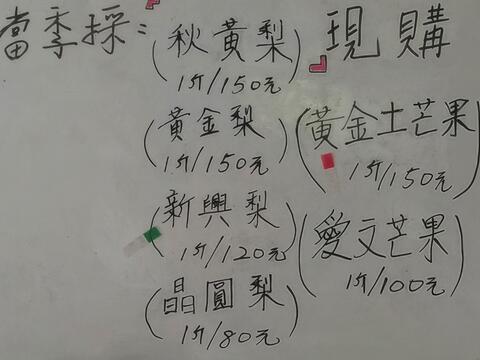 當季採：
(秋黃梨)
1斤/150元
(黃金梨)
1斤/150元
(新興梨)
1斤/120元
(晶圓梨)
1斤/80元
現購
(黃金土芒果)
1斤/150元
(愛文芒果)
1斤/100元